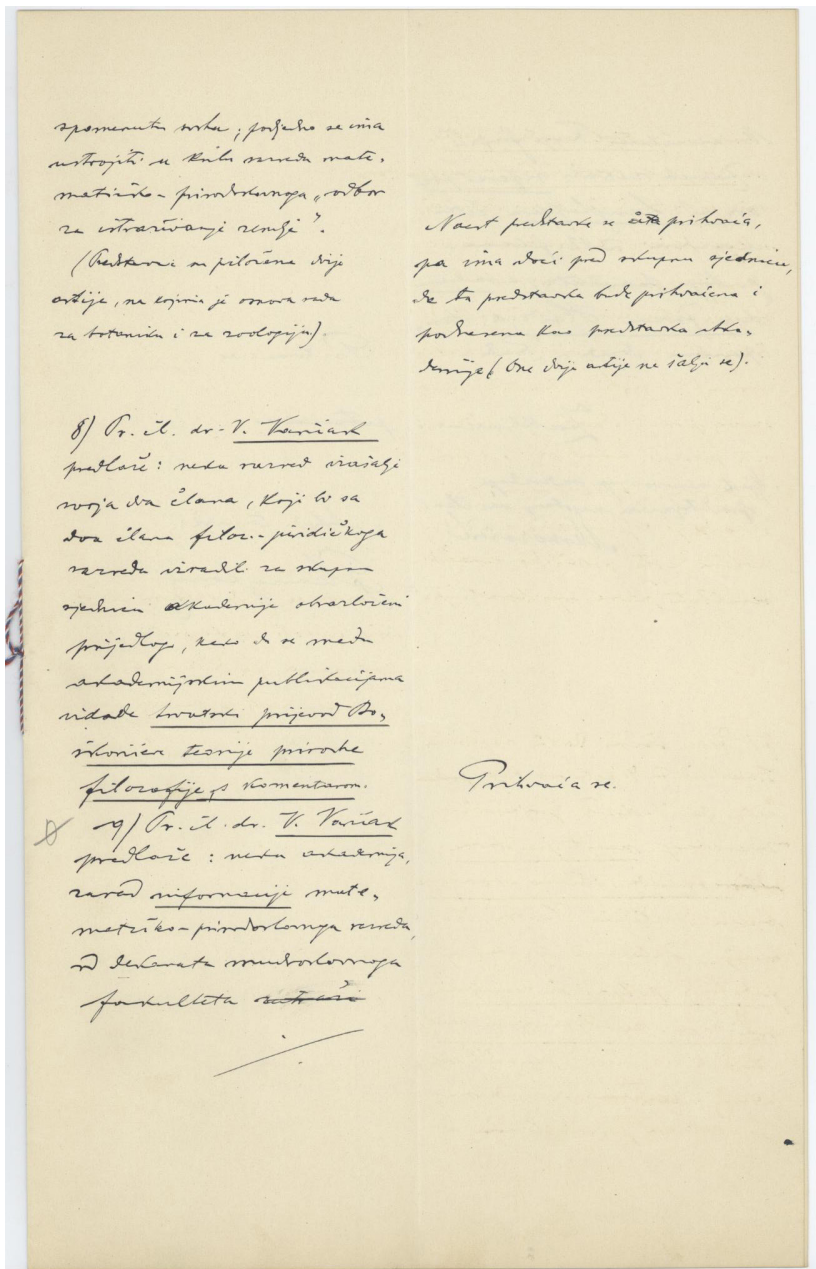 spomenutu svrhu; podjedno se ima
ustrojiti u krilu razreda mate-
matičko-prirodoslovnoga „odbor
za istraživanje zemlje“.
(Predstavci su priložena dvije
artije, na kojima je osnova rada
za botaniku i za zoologiju.)
8) Pr. čl. dr. V. Varićak
predlaže: neka razred izašalje
svoja dva člana, koji bi sa
dva člana filoz.-juridičkoga
razreda izradili za skupnu
sjednicu akademije obrazloženi
prijedlog, kako da se među
akademijskim publikacijama
izdade hrvatski prijevod Bo-
škovićeve teorije prirodne
filozofije s komentarom.
9) Pr. čl. dr. V. Varićak
predlaže: neka akademija,
zarad informacije mate-
matičko-prirodoslovnoga razreda,
od dekanata mudroslovnoga
fakulteta zatraži
Nacrt predstavke se prihvaća,
pa ima doći pred skupnu sjednicu,
da ta predstavka bude prihvaćena i
podnesena kao predstavka aka-
demije (One dvije artije ne šalju se).
Prihvaća se.